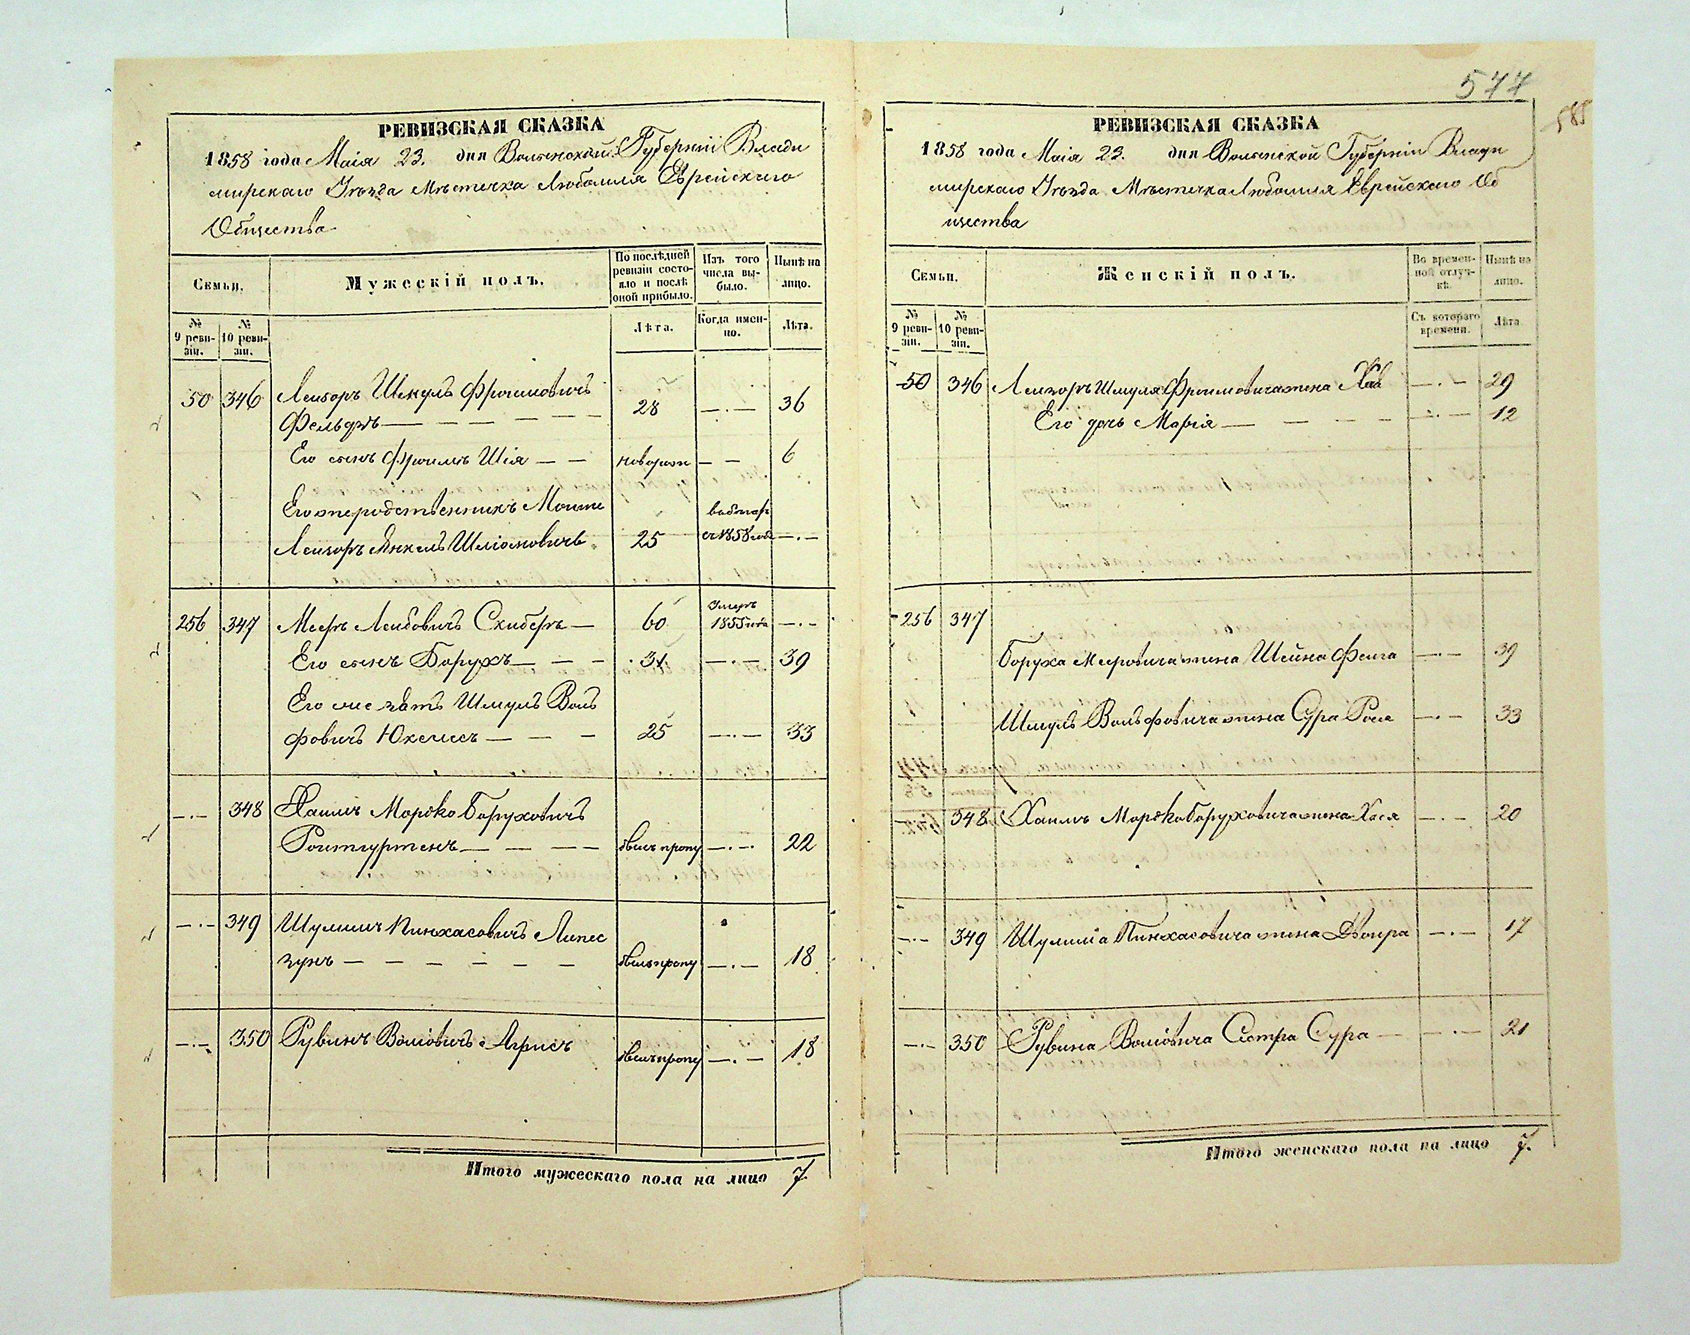 577
585
РЕВИЗСКАЯ СКАЗКА
1858 года Маія 23. дня Волынской Губерніи Влади
мирскаго Уѣзда Мѣстечка Любомля Еврейскаго
Общества
Семьи.
Мужескій полъ.
По послѣдней ревизіи состояло и послѣ оной прибыло.
Изъ того числа выбыло.
Нынѣ на лицо.
№ 9 ревизіи.
№ 10 ревизіи.
Лѣта.
Когда именно.
Лѣта.
50 346 Лейзоръ Шмулъ Фроимовичъ
Фельдъ — — — — 28 —.— 36
Его сынъ Фроимъ Шія — — новорож — — 6
Его
Лейзоръ Янкелъ 25 съ 1858 года —.—
256 347 Мееръ Лейбовичъ Скиберъ — 60 Умеръ 1855 года —.—
Его сынъ Борухъ — — — 31 —.— 39
Его Шмулъ Воль
фовичъ — — — 25 —.— 33
—.— 348 Хаимъ Мордко Боруховичъ
— — — — былъ пропу —.— 22
—.— 349 Шулимъ Пинхасовичъ Липес
зунъ — — — — — — былъ пропу —.— 18
—.— 350 Рувинъ былъ пропу —.— 18
Итого мужескаго пола на лицо 7.
РЕВИЗСКАЯ СКАЗКА
1858 года Маія 23. дня Волынской Губерніи Влади
мирскаго Уѣзда Мѣстечка Любомля Еврейскаго Об
щества
Семьи.
Женскій полъ.
Во временной отлучкѣ.
Нынѣ на лицо.
№ 9 ревизіи.
№ 10 ревизіи.
Съ котораго времени.
Лѣта
50 346 Лейзоръ Шмуля Фроимовича жена —.— 29
Его дочь Марія — — — — —.— 12
256 347
Боруха Меровича жена Шейна Фейга —.— 39
Шмулъ Вольфовича жена Сура —.— 33
348 Хаимъ Мордко Боруховича жена Хася —.— 20
—.— 349 Шулима Пинхасовича жена Двойра —.— 17
—.— 350 Рувина Сестра Сура — —.— 21
Итого женскаго пола на лицо 7.